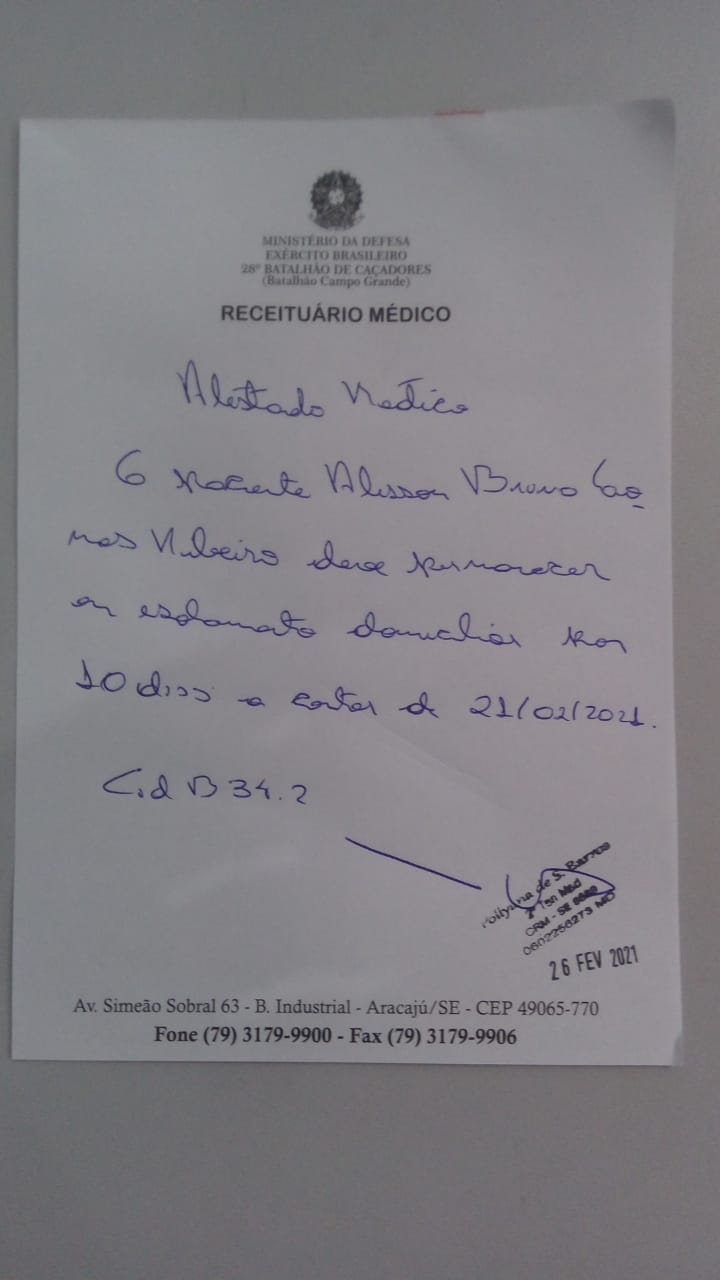 MINISTÉRIO DA DEFESA
EXÉRCITO BRASILEIRO
28º BATALHÃO DE CAÇADORES
(Batalhão Campo Grande)
RECEITUÁRIO MÉDICO
Atestado Médico
O paciente Alisson Bruno
Ribeiro deve permanecer
em isolamento domiciliar por
10 dias a contar de 21/02/2021.
Cid B 34.2
de S. Barros
2º Ten Med
CRM - SE
26 FEV 2021
Av. Simeão Sobral 63 - B. Industrial - Aracajú/SE - CEP 49065-770
Fone (79) 3179-9900 - Fax (79) 3179-9906